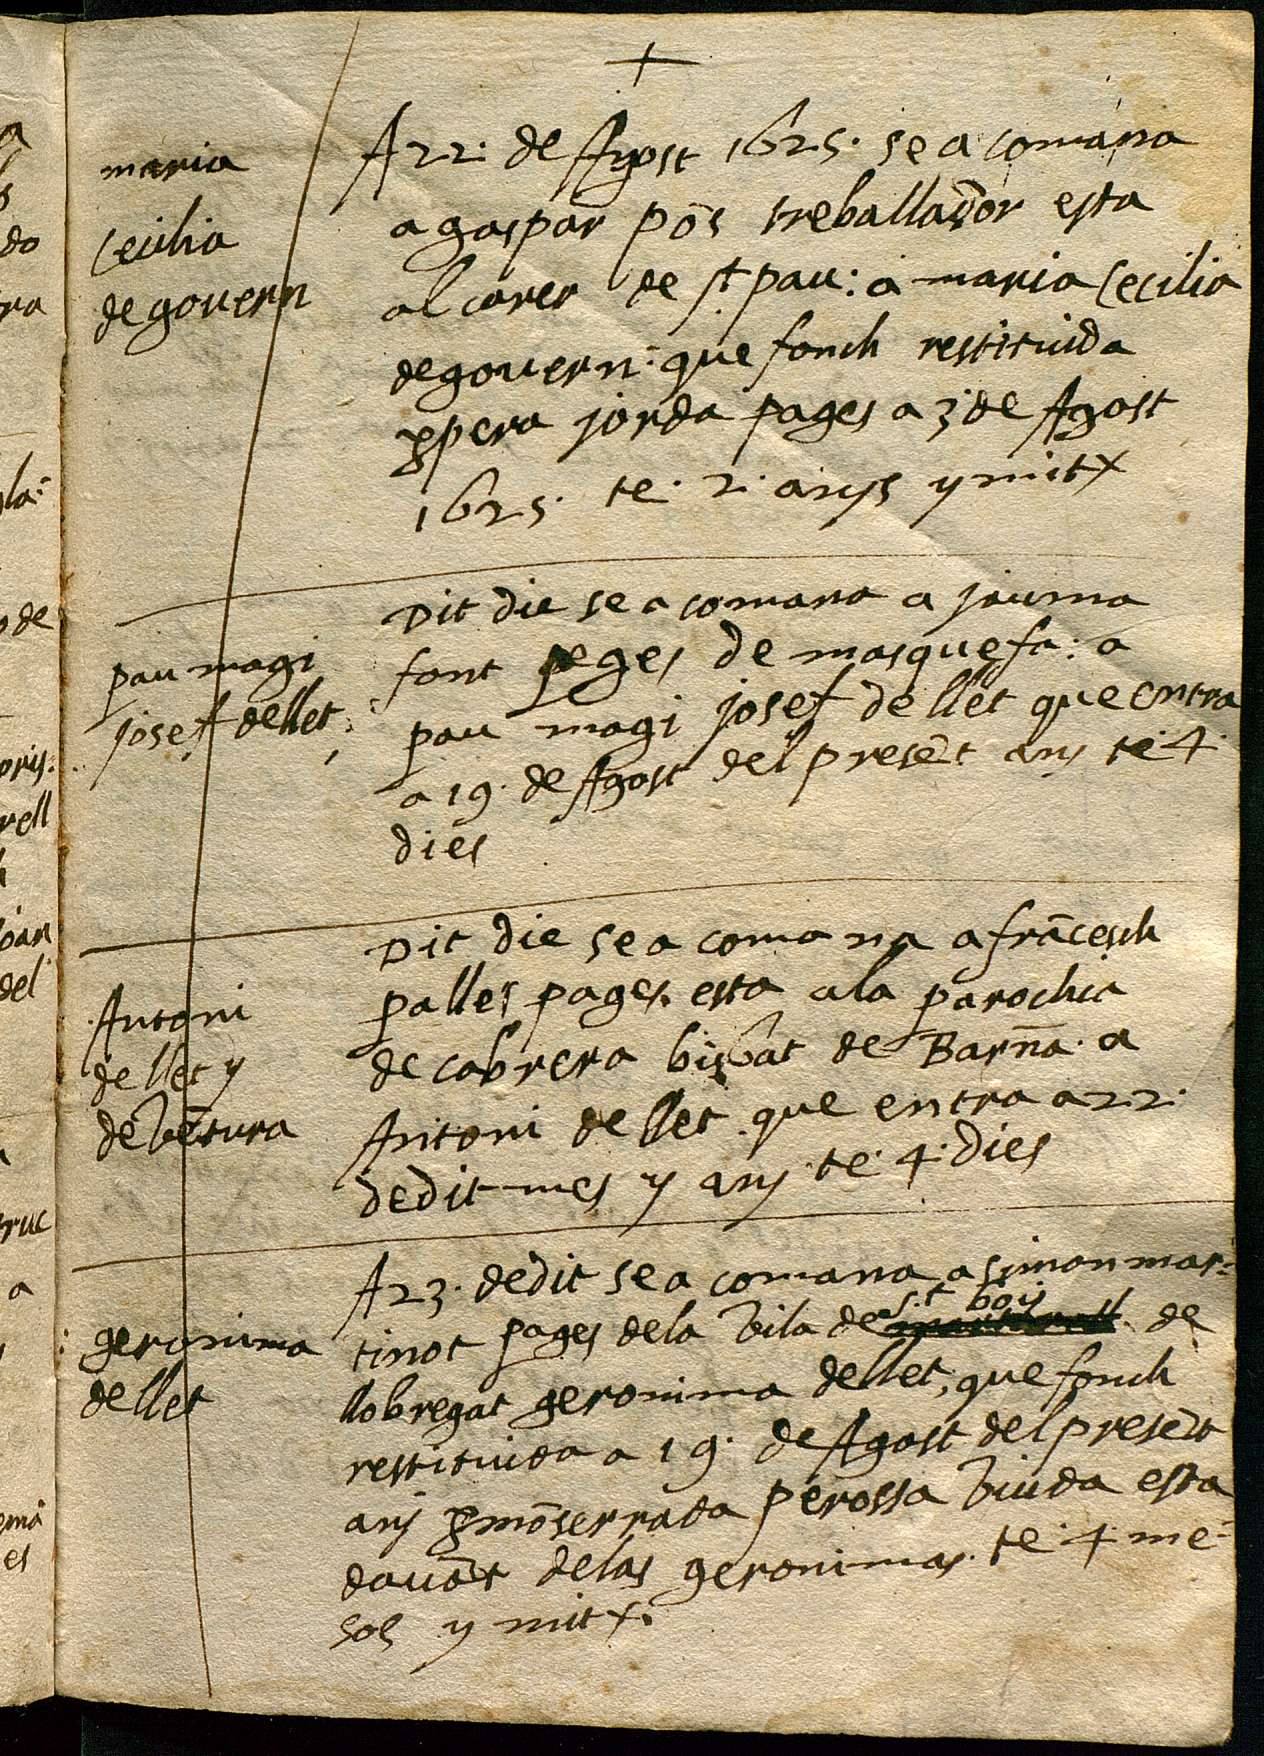 maria
Cecilia
de govern
A 22. de Agost 1625. se a comana
a gaspar põs treballador esta
al carer de st pau: a maria Cecilia
de govern: que fonch restituida
p pera jorda pages a 3 de Agost
1625. te. 2. anys y mitx
pau magi
josef de llet
Dit die se a comana a jauma
font pages de masquefa: a
pau magi josef de llet que entra
a 19. de Agost del presẽt any te 4.
dies
Antoni
de llet y
de vẽtura
Dit die se a comana a frãcesch
palles pages. esta a la parochia
de cabrera bisbat de Barña. a
Antoni de llet. que entra a 22.
de dit mes y any. te. 4. dies
geronima
de llet
A 23. de dit se a comana a simon mar-
tinot pages de la vila de st boy de
llobregat geronima de llet, que fonch
restituida a 19. de Agost del presẽt
any p mõserrada perossa viuda esta
davãt de las geronimas. te. 4 me-
sos y mitx.